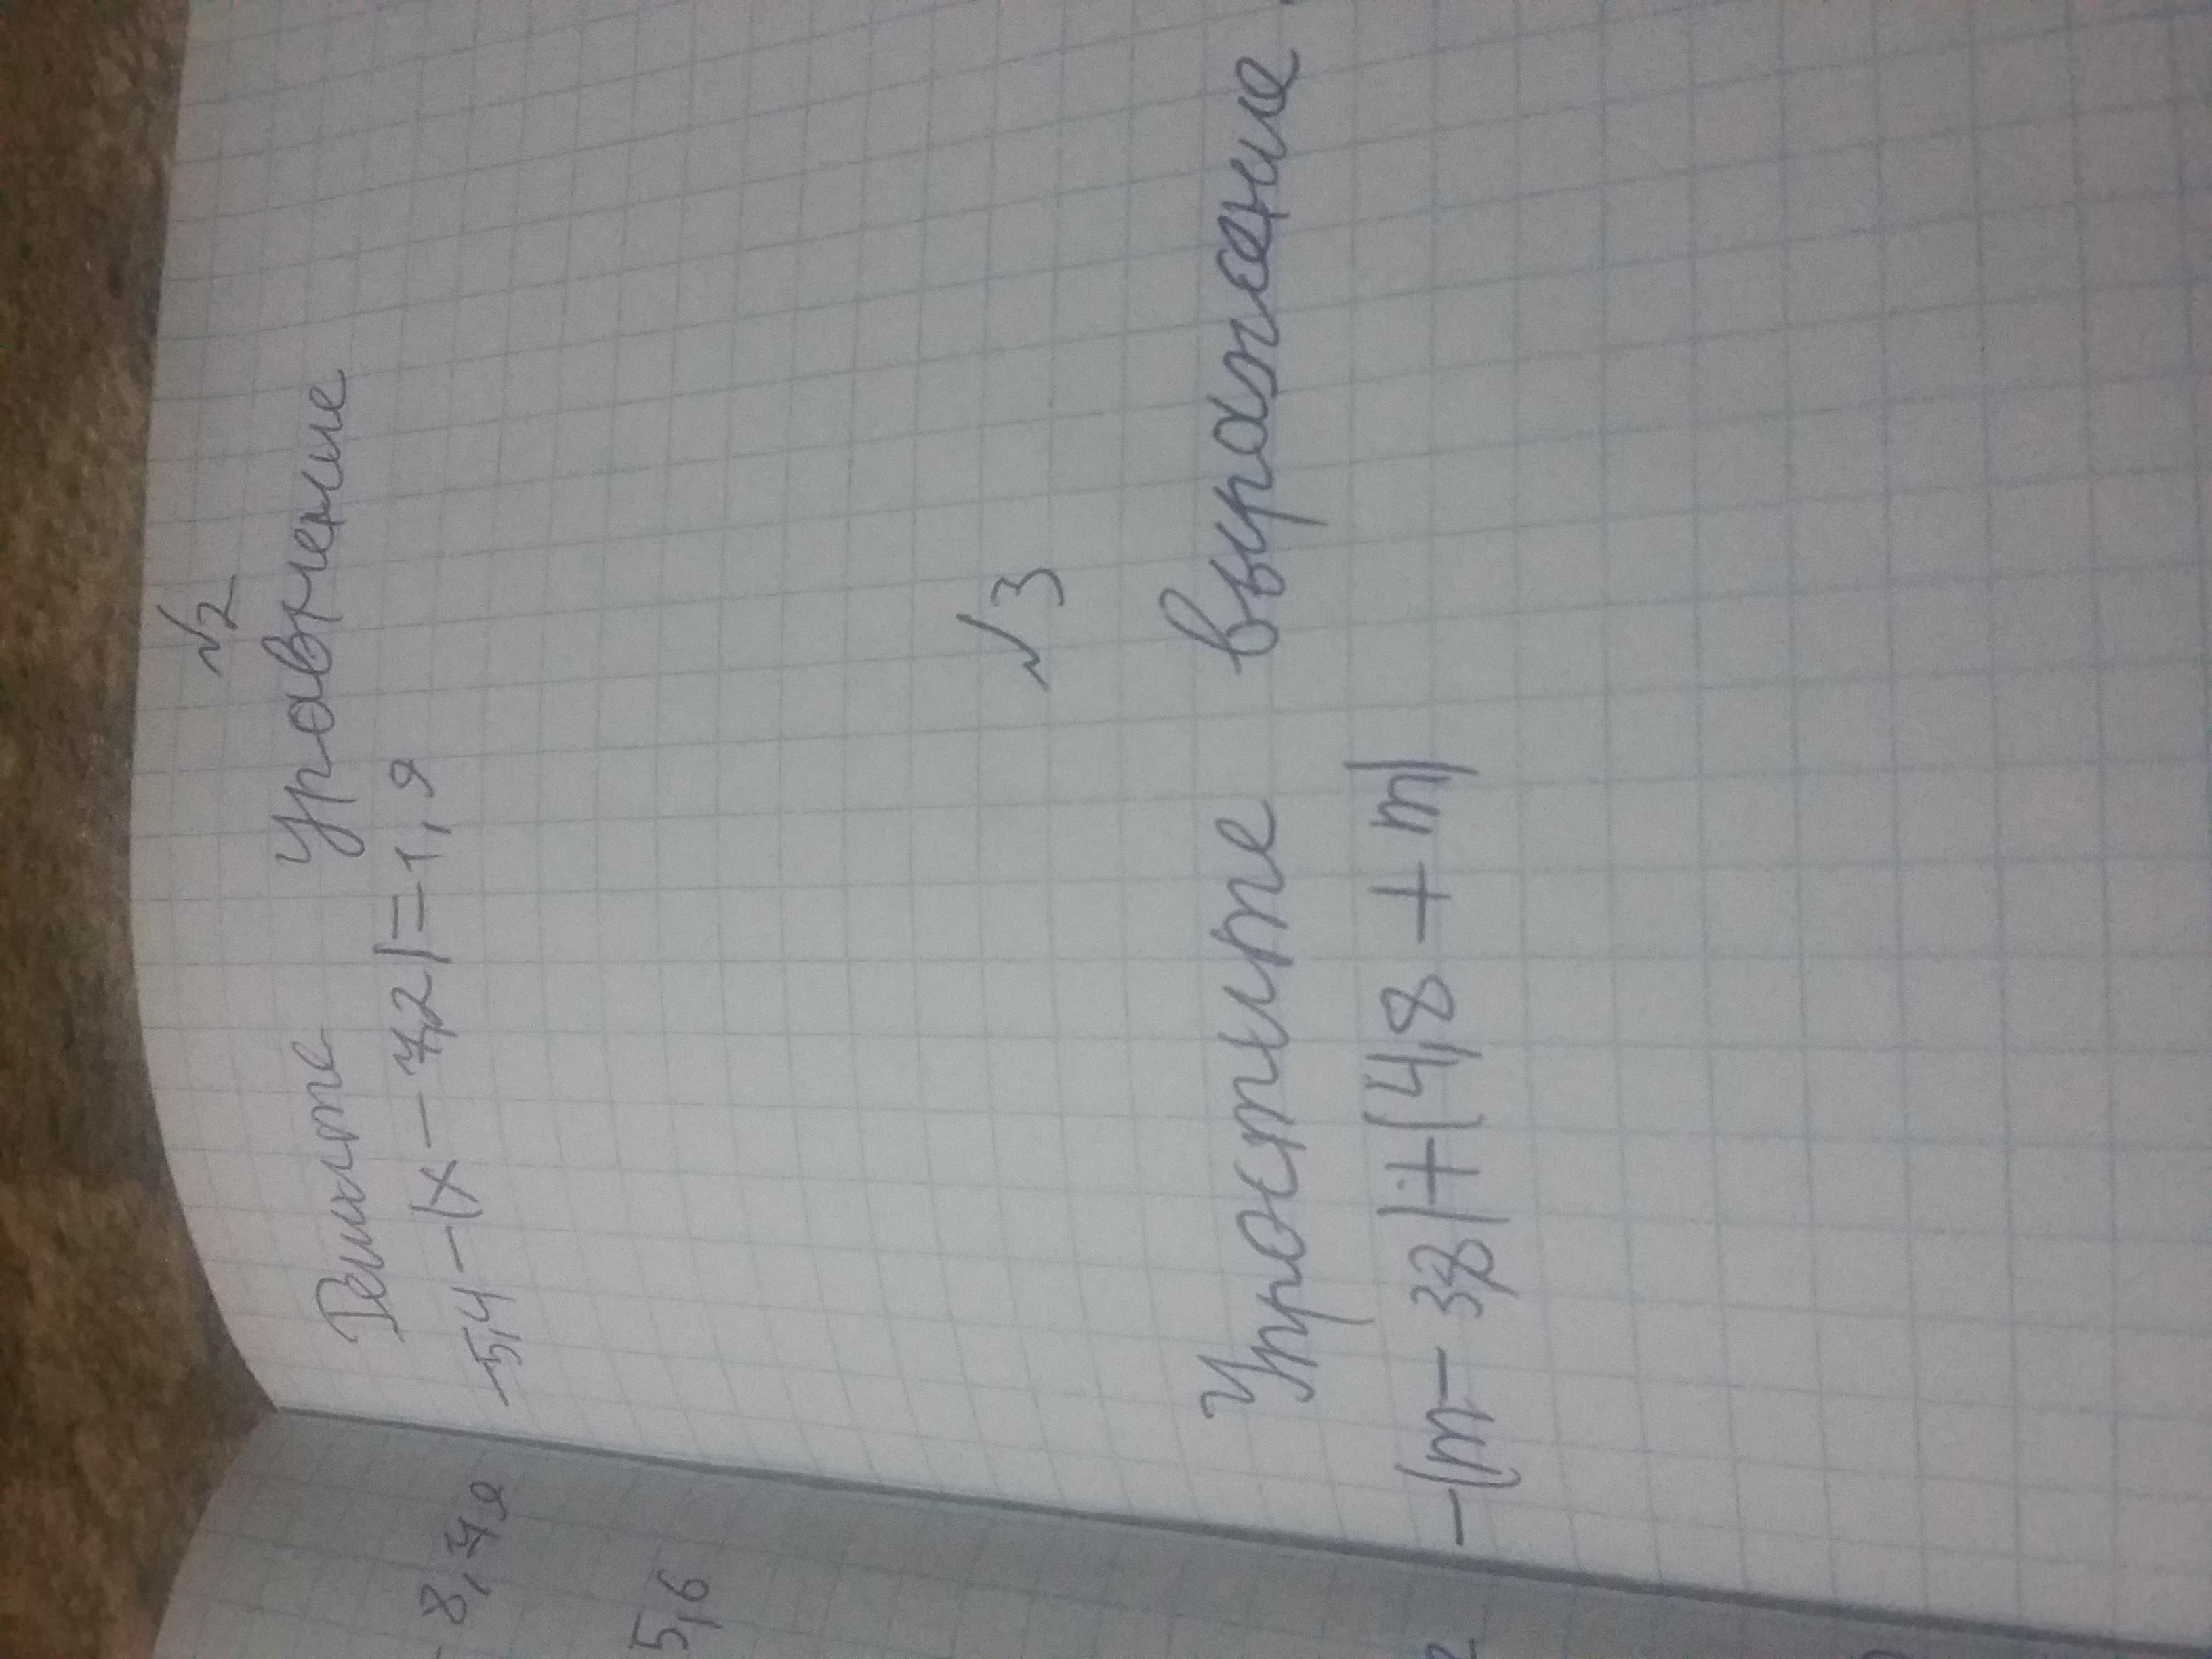 №2
Решите Уровнение
-5,4-(x-7,2)=1,9
№3
Упростите выражение
-(m-3,8)+(4,8+m)
5,6